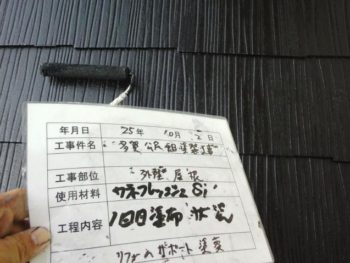 年月日 25年 10月 2日
工事件名 多賀公民館塗装工事
工事部位 外壁 屋根
使用材料 サネフレッシュSi
工程内容 1回目塗布 状況
リフォームサポート 塗装